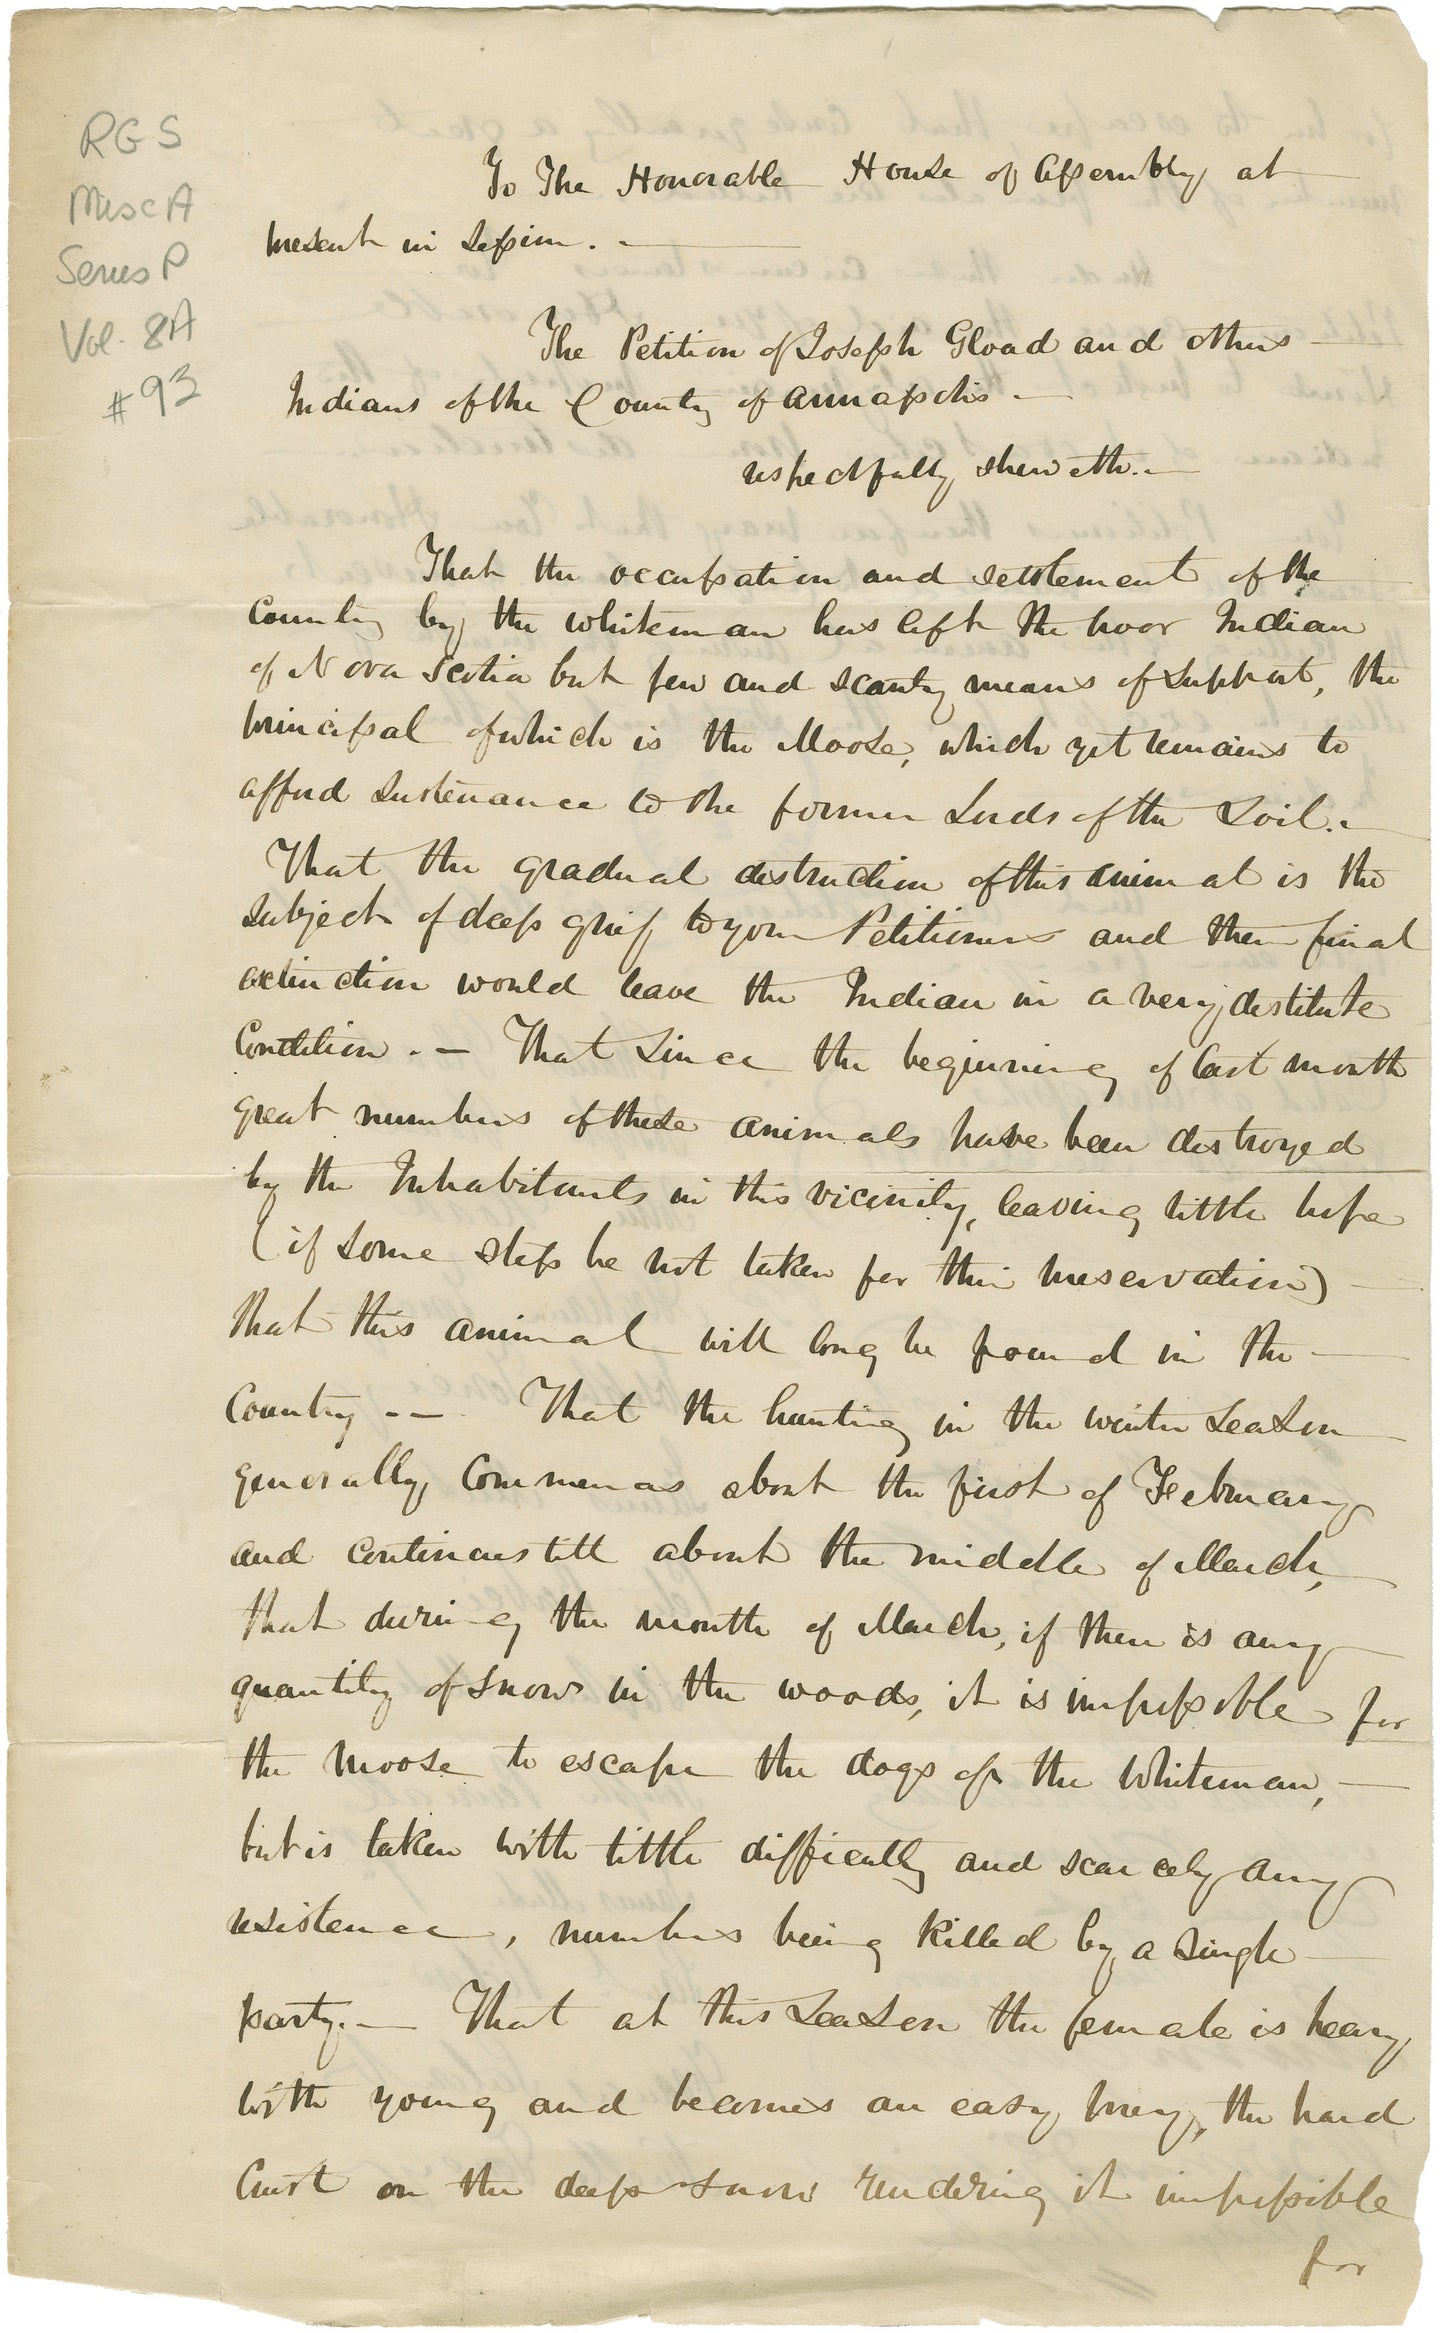 RG 5
Misc A
Series P
Vol. 8A
# 93
To The Honorable House of Assembly at
present in Session. -
The Petition of Joseph Gload and others
Indians of the County of Annapolis -
respectfully sheweth. -
That the occupation and settlement of the
Country by the whiteman has left the poor Indian
of Nova Scotia but few and scanty means of support, the
principal of which is the Moose, which yet remains to
afford sustenance to the former Lords of the Soil. -
That the gradual destruction of this animal is the
subject of deep grief to your Petitioners and their final
extinction would leave the Indian in a very destitute
Condition. - That since the beginning of last month
great numbers of these animals have been destroyed
by the Inhabitants in this vicinity, leaving little hope
(if some steps be not taken for their preservation)
that this animal will long be found in the
Country. - That the hunting in the winter season
generally commences about the first of February
and continues till about the middle of March,
that during the month of March, if there is any
quantity of snow in the woods, it is impossible for
the moose to escape the dogs of the Whiteman,
but is taken with little difficulty and scarcely any
resistence, numbers being killed by a single
party. - That at this season the female is heavy
with young and becomes an easy prey, the hard
Crust on the deep snow rendering it impossible
for